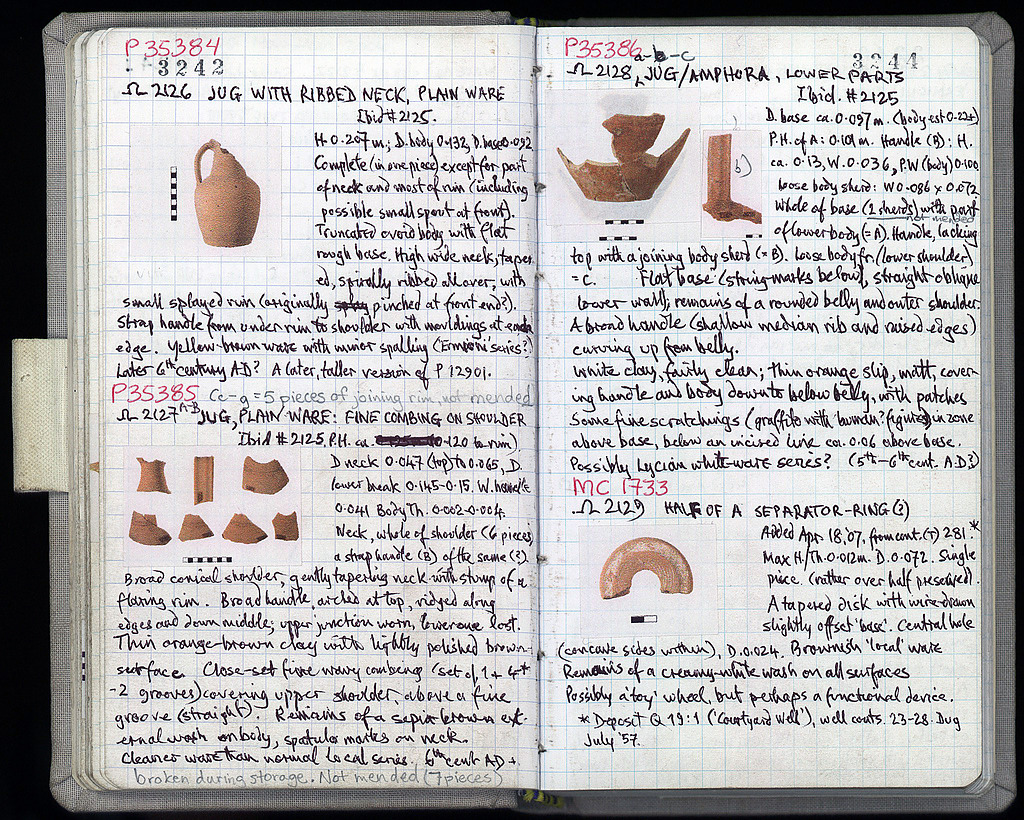 P 35384
3242
Ω 2126 JUG WITH RIBBED NECK, PLAIN WARE
Ibid #2125.
H 0.207m; D. body 0.132, D. base 0.092
Complete (in one piece) except for part
of neck and most of rim (including
possible small spout at front).
Truncated ovoid body with flat
rough base. High wide neck, taper
ed, spirally ribbed all over, with
small splayed rim (originally pinched at front end?).
Strap handle from under rim to shoulder with mouldings at each
edge. Yellow-brown ware with minor spalling ('Ermioni' series?)
Later 6th century AD? A later, taller version of P 12901.
P35385 Cc-g = 5 pieces of joining rim, not mended
Ω 2127 A-B JUG, PLAIN WARE: FINE COMBING ON SHOULDER
Ibid #2125. P.H. ca 0.120 to rim).
D neck 0.047 (top) to 0.065, D.
lower break 0.145-0.15. W. handle
0.041 Body Th. 0.002-0.004.
Neck, whole of shoulder (6 pieces)
a strap handle (B) of the same (?).
Broad conical shoulder, gently tapering neck with stump of a
flaring rim. Broad handle, arched at top, ridged along
edges and down middle; upper junction worn, lower one lost.
Thin orange-brown clay with lightly polished brown
surface. Close-set fine wavy combing (set of 1 + 4*
-2 grooves) covering upper shoulder, above a fine
groove (straight). Remains of a sepia brown ext-
ernal wash on body, spatula marks on neck.
Cleaner ware than normal local series. 6th cent AD +
broken during storage. Not mended (7 pieces)
P35386 a-b-c
3244
Ω 2128, JUG/AMPHORA, LOWER PARTS
Ibid. #2125
D. base ca. 0.097m. (body est 0.22+
P.H. of A: 0.101m. Handle (B): H.
ca. 0.13, W. 0.036, P.W (body) 0.100
loose body sherd: W 0.086 x 0.072
b)
Whole of base (2 sherds) with part
not mended
of lower body (= A). Handle, lacking
top with a joining body sherd (= B). Loose body fr. (lower shoulder)
= C. Flat base (string-marks below), straight oblique
lower wall; remains of a rounded belly and outer shoulder.
A broad handle (shallow median rib and raised edges)
curving up from belly.
White clay, fairly clean; thin orange slip, matt, cover-
ing handle and body down to below belly, with patches
Some fine scratchings (graffito with 'human? figures) in zone
above base, below an incised line ca. 0.06 above base.
Possibly Lycian white-ware series? (5th-6th cent. A.D?)
MC 1733
Ω 2129 HALF OF A SEPARATOR-RING (?)
Added Apr 18.'07, from cont. (T) 281.*
Max H/Th. 0.012m. D. 0.072. Single
piece. (rather over half preserved).
A tapered disk with wire-drawn
slightly offset 'base'. Central hole
(concave sides within), D. 0.024. Brownish 'local' ware
Remains of a creamy-white wash on all surfaces
Possibly a 'toy' wheel, but perhaps a functional device.
* Deposit Q 19:1 ('Courtyard Well'), well conts. 23-28. Dug
July '57.